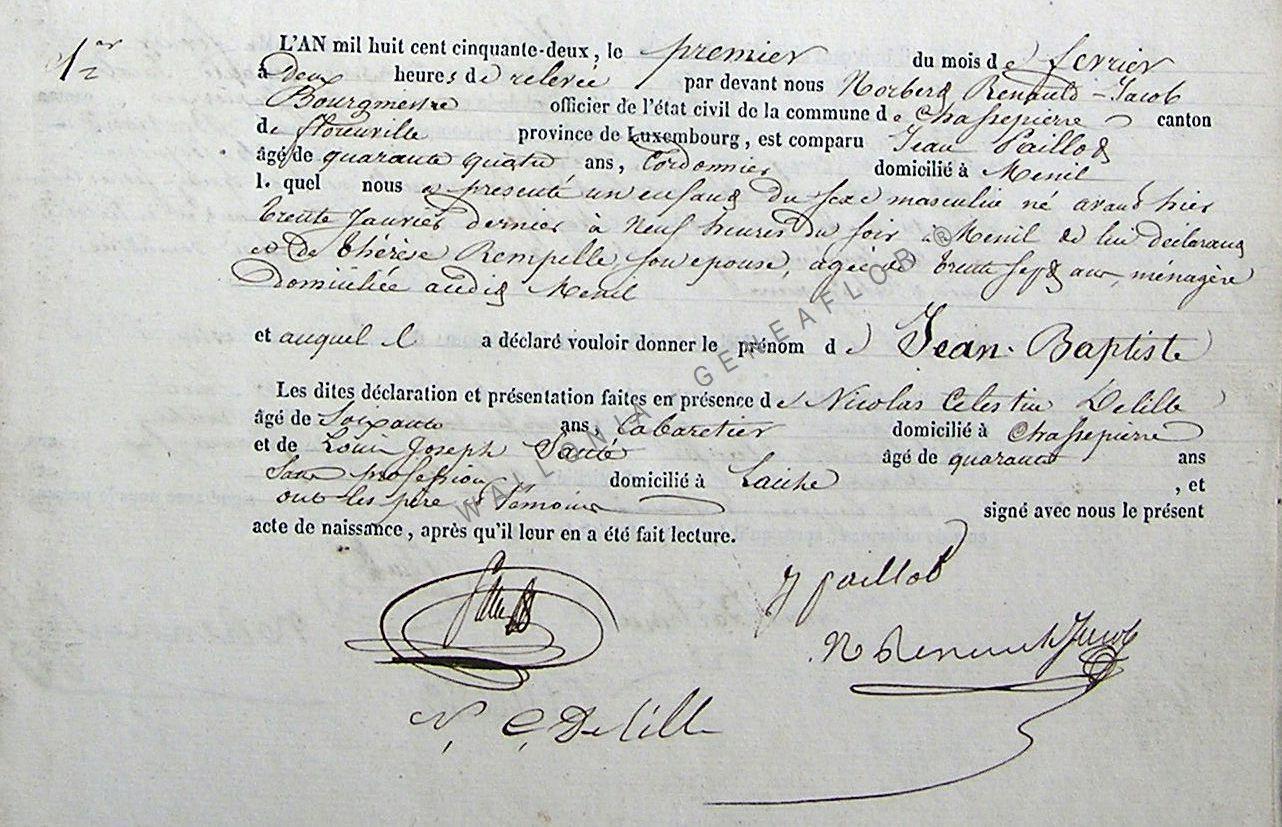 1er
L'AN mil huit cent cinquante-deux, le premier du mois de fevrier
à deux heures de relevée par devant nous Norbert Renauld-Jacob
Bourgmestre officier de l'état civil de la commune de Chassepierre canton
de florenville province de Luxembourg, est comparu Jean Paillot
âgé de quarante quatre ans, Cordonnier domicilié à Menil
l. quel nous a presenté un enfant du sexe masculin né avant hier
trente Janvier dernier à Neuf heures du soir à Menil de lui déclarant
et de thérèse Rempelle son epouse, agée de trente sept ans, ménagère
Domiciliée audit Menil
et auquel il a déclaré vouloir donner le prénom de Jean-Baptiste
Les dites déclaration et présentation faites en présence de Nicolas Celestin Delille
âgé de Soixante ans, Cabaretier domicilié à Chassepierre
et de Louis Joseph âgé de quarante ans
Sans profession domicilié à Laiche , et
ont les père & Temoins signé avec nous le présent
acte de naissance, après qu'il leur en a été fait lecture.
J paillot
N Renauld Jacob
N. C. Delille
WALLONIA GENEAFLOR ®